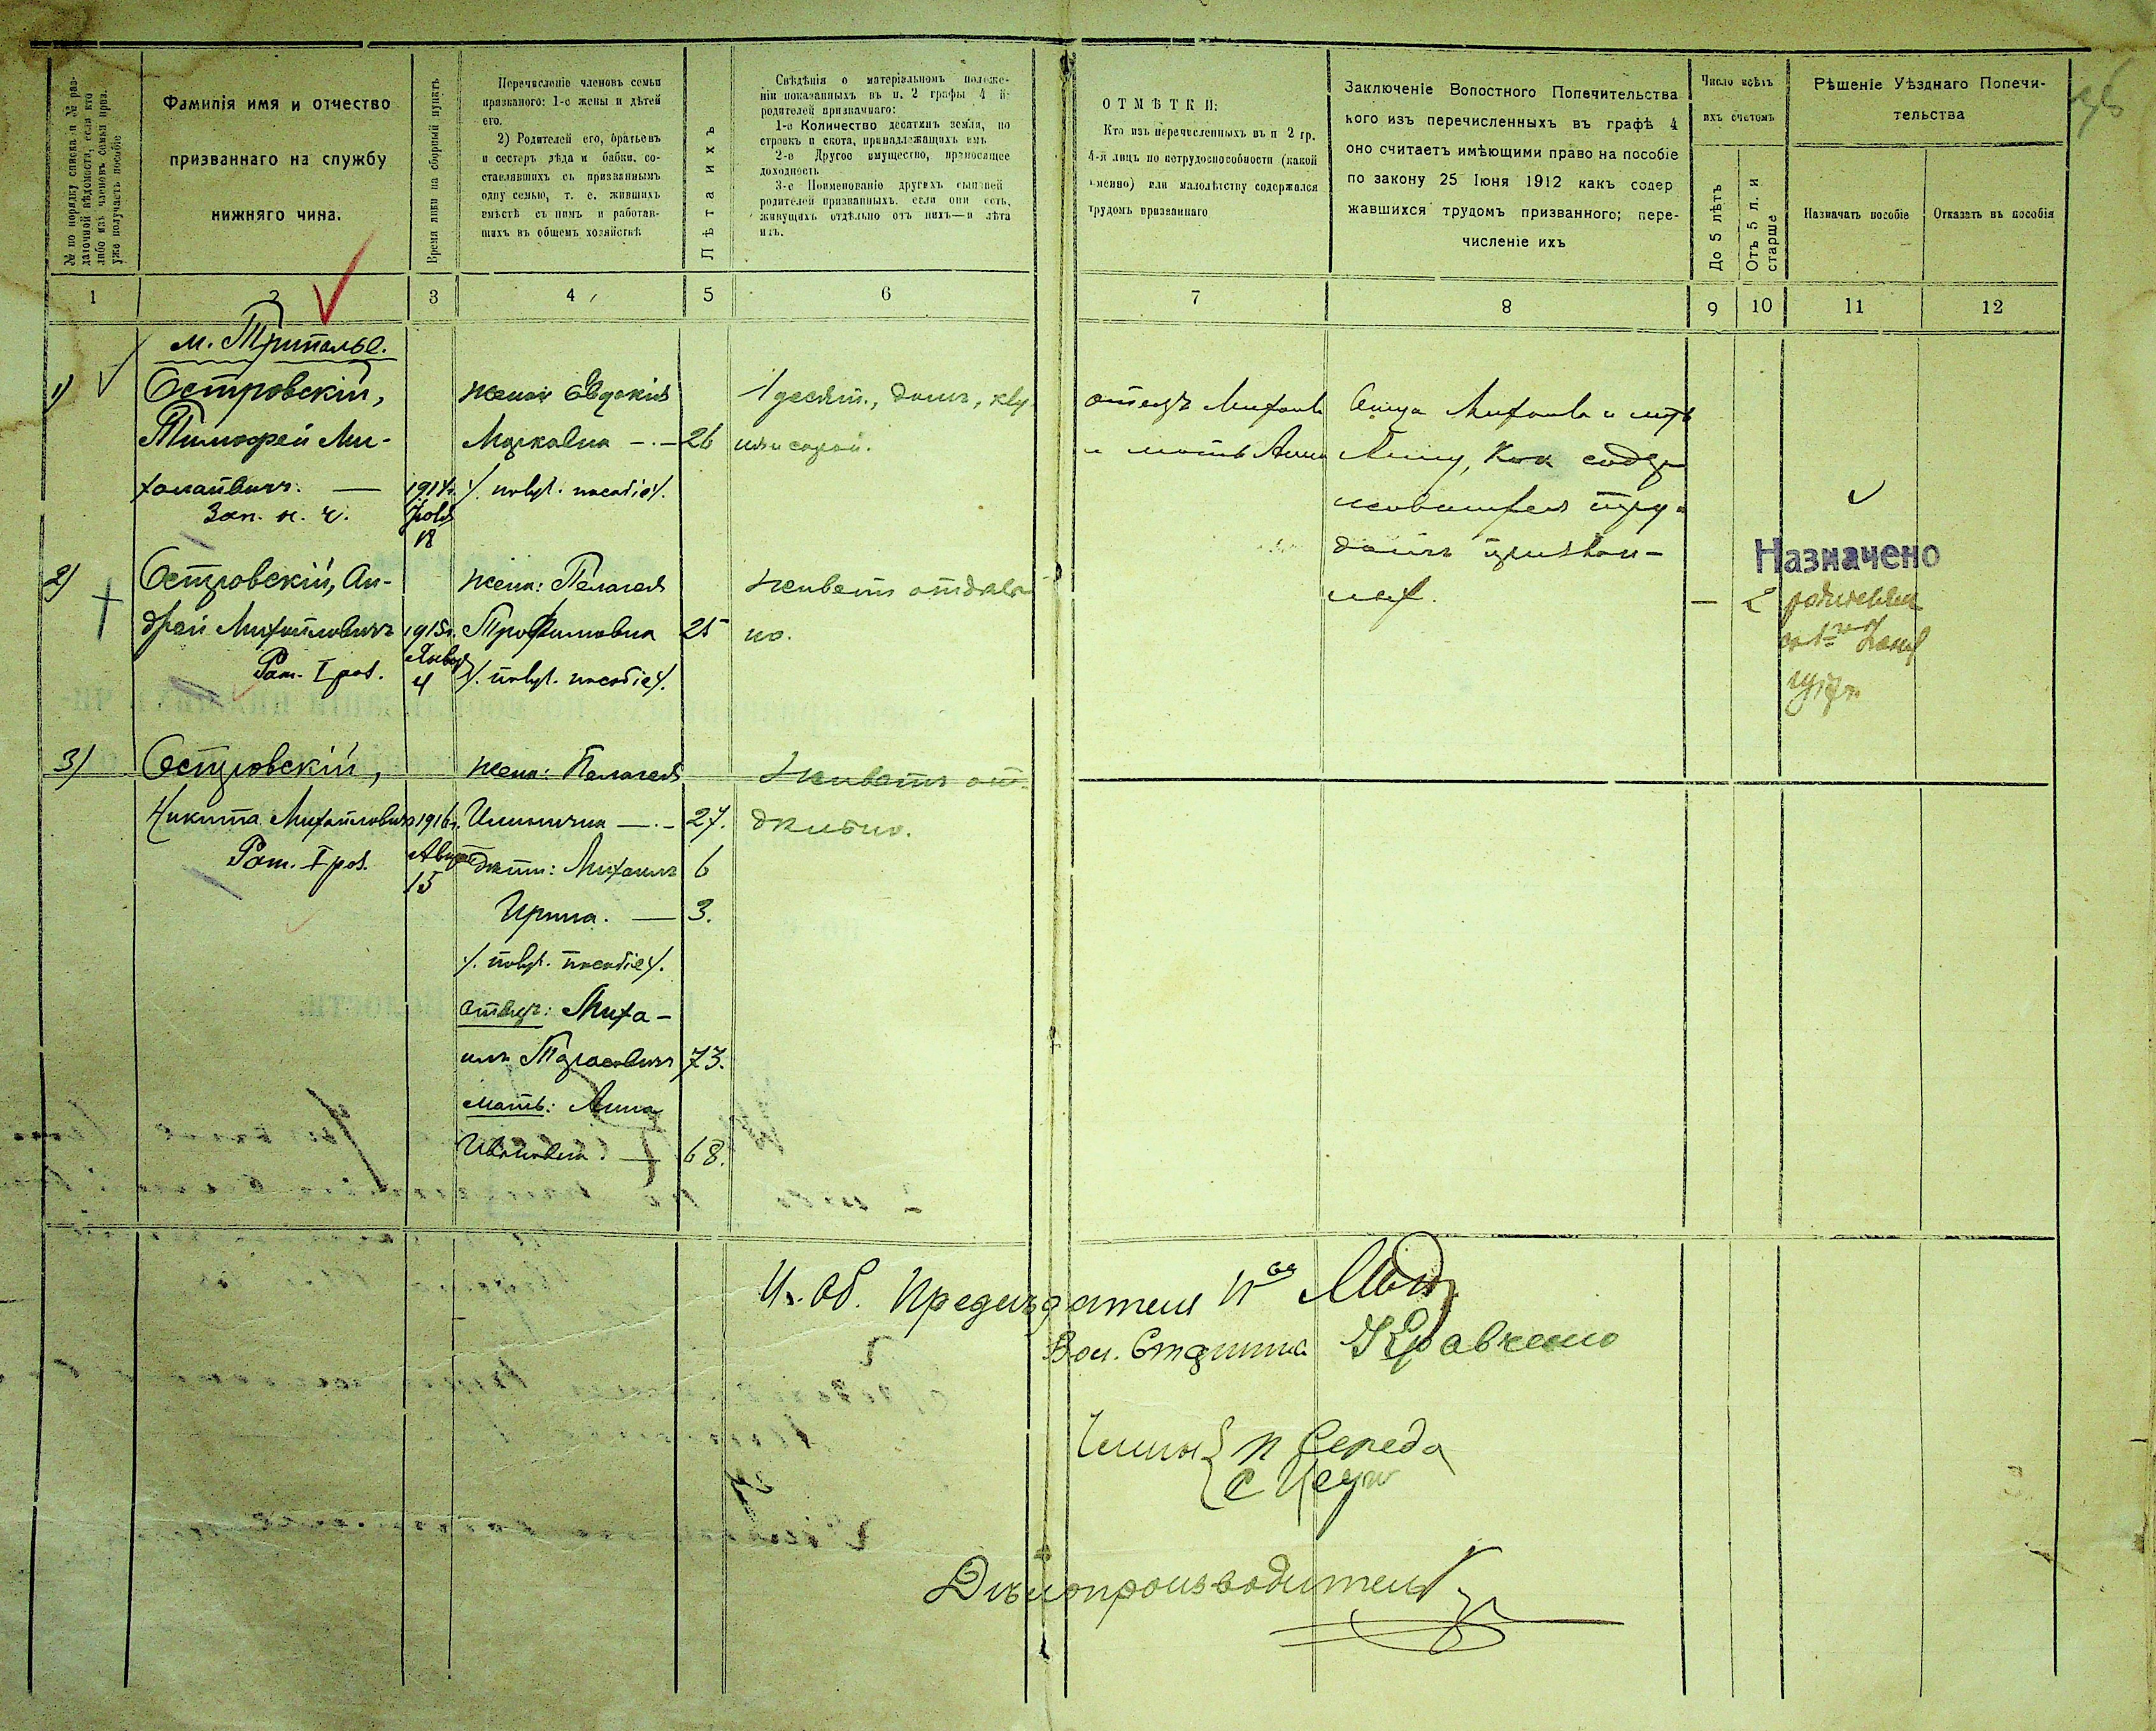 № по порядку списка и № раз-
даточной вѣдомости, если кто
либо изъ членовъ семьи приз.
уже получаетъ пособіе
Фамилія имя и отчество
призваннаго на службу
нижняго чина.
Время явки на сборный пунктъ
Перечисленіе членовъ семьи
призванаго: 1-е жены и дѣтей
его.
2) Родителей его, братьевъ
и сестеръ дѣда и бабки, со-
ставлявшихъ съ призваннымъ
одну семью, т. е. жившихъ
вмѣстѣ съ нимъ и работав-
шихъ въ общемъ хозяйствѣ
Лѣта ихъ
Свѣдѣнія о матеріальномъ положе-
ніи показанныхъ въ п. 2 графы 4 й-
родителей призваннаго:
1-е Количество десятинъ земли, по
строекъ и скота, принадлежащихъ имъ
2-е Другое имущество, приносящее
доходность
3-е Поименованіе другихъ сыновей
родителей призванныхъ, если они есть,
живущихъ отдѣльно отъ нихъ—и лѣта
ихъ.
ОТМѢТКИ:
Кто изъ перечисленныхъ въ п 2 гр.
4-я лицъ по нетрудоспособности (какой
именно) или малолѣтству содержался
трудомъ призваннаго
Заключеніе Волостного Попечительства
кого изъ перечисленныхъ въ графѣ 4
оно считаетъ имѣющими право на пособіе
по закону 25 Іюня 1912 какъ содер
жавшихся трудомъ призванного; пере-
численіе ихъ
Число всѣхъ
ихъ счетомъ
До 5 лѣтъ
Отъ 5 л. и
старше
Рѣшеніе Уѣзднаго Попечи-
тельства
Назначать пособіе
Отказать въ пособіи
1 2 3 4 5 6 7 8 9 10 11 12
м. Триполье.
1) Островскій,
Тимофей Ми-
хайловичъ. —
Зап. н. ч.
1914г.
Іюля
18
жена: Евдокія
Марковна — 26
/. получ. пособіе/.
1 десят., домъ, клу
ня и сарай.
отецъ Михаилъ
и мать Анна
Отца Михаила и мать
Анну, какъ содер
жавшихся тру-
домъ призван-
ных.
Назначено
— 2 родителям
2) Островскій, Ан-
дрей Михайловичъ
Рат. I раз.
1915г.
Января
4
жена: Пелагея
Трофимовна 25
/. получ. пособіе/.
живетъ отдѣль
но.
3) Островскій,
Никита Михайловичъ
Рат. I раз.
1916г.
Август
15
жена: Пелагея
Ильинична — 27.
дѣти: Михаилъ 6
Ирина. — 3.
/. получ. пособіе/.
отецъ: Миха-
илъ Тарасовичъ 73.
мать: Анна
Ивановна. — 68.
Живетъ от-
дѣльно.
И. об. Предсѣдателя П-ва
Вол. Старшина Кравченко
Члены { П Середа
Дѣлопроизводитель